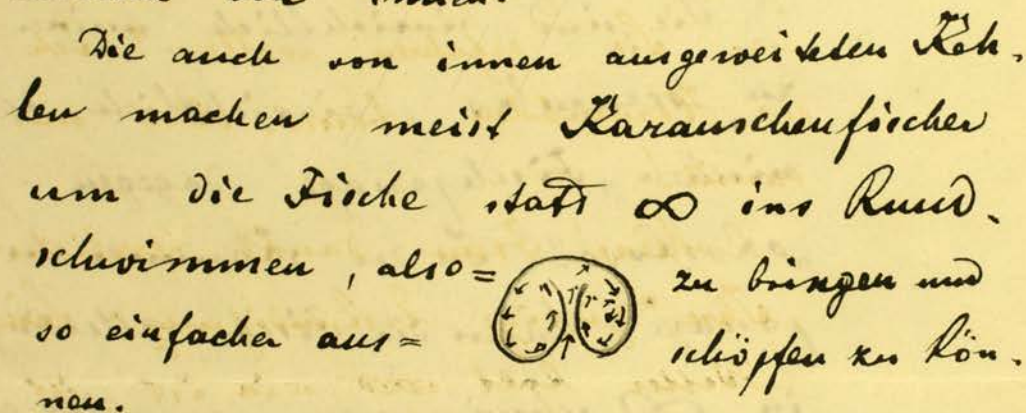 Die auch von innen ausgeweiteten Keh-
len machen meist Karauschenfischer
um die Fische statt ∞ ins Rund-
schwimmen, also = zu bringen und
so einfacher aus= schöpfen zu kön-
nen.